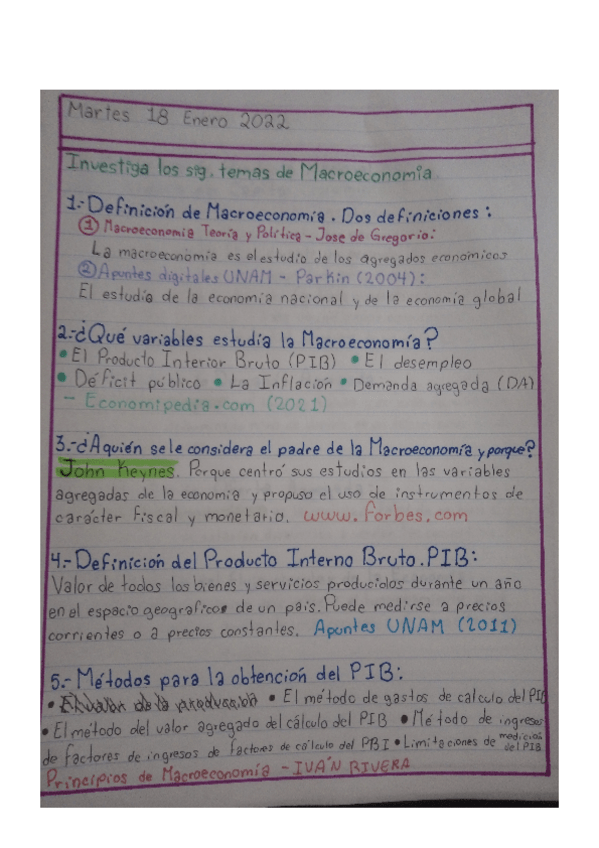 Martes 18 Enero 2022
Investiga los sig. temas de Macroeconomia.
1.- Definición de Macroeconomia. Dos definiciones:
① Macroeconomia Teoría y Política - Jose de Gregorio:
La macroeconomia es el estudio de los agregados económicos
② Apuntes digitales UNAM - Parkin (2004):
El estudio de la economia nacional y de la economia global
2.-¿Qué variables estudia la Macroeconomía?
• El Producto Interior Bruto (PIB) • El desempleo
• Déficit público • La Inflación • Demanda agregada (DA)
- Economipedia.com (2021)
3.-¿A quién se le considera el padre de la Macroeconomía y porque?
John Keynes. Porque centró sus estudios en las variables
agregadas de la economia y propuso el uso de instrumentos de
carácter fiscal y monetario. www.forbes.com
4.- Definición del Producto Interno Bruto. PIB:
Valor de todos los bienes y servicios producidos durante un año
en el espacio geografico de un pais. Puede medirse a precios
corrientes o a precios constantes. Apuntes UNAM (2011)
5.- Métodos para la obtención del PIB:
• El valor de la producción • El método de gastos de calculo del PIB
• El método del valor agregado del cálculo del PIB • Método de ingresos
de factores de ingresos de factores de cálculo del PBI • Limitaciones de medición del PIB
Principios de Macroeconomía - IVÁN RIVERA